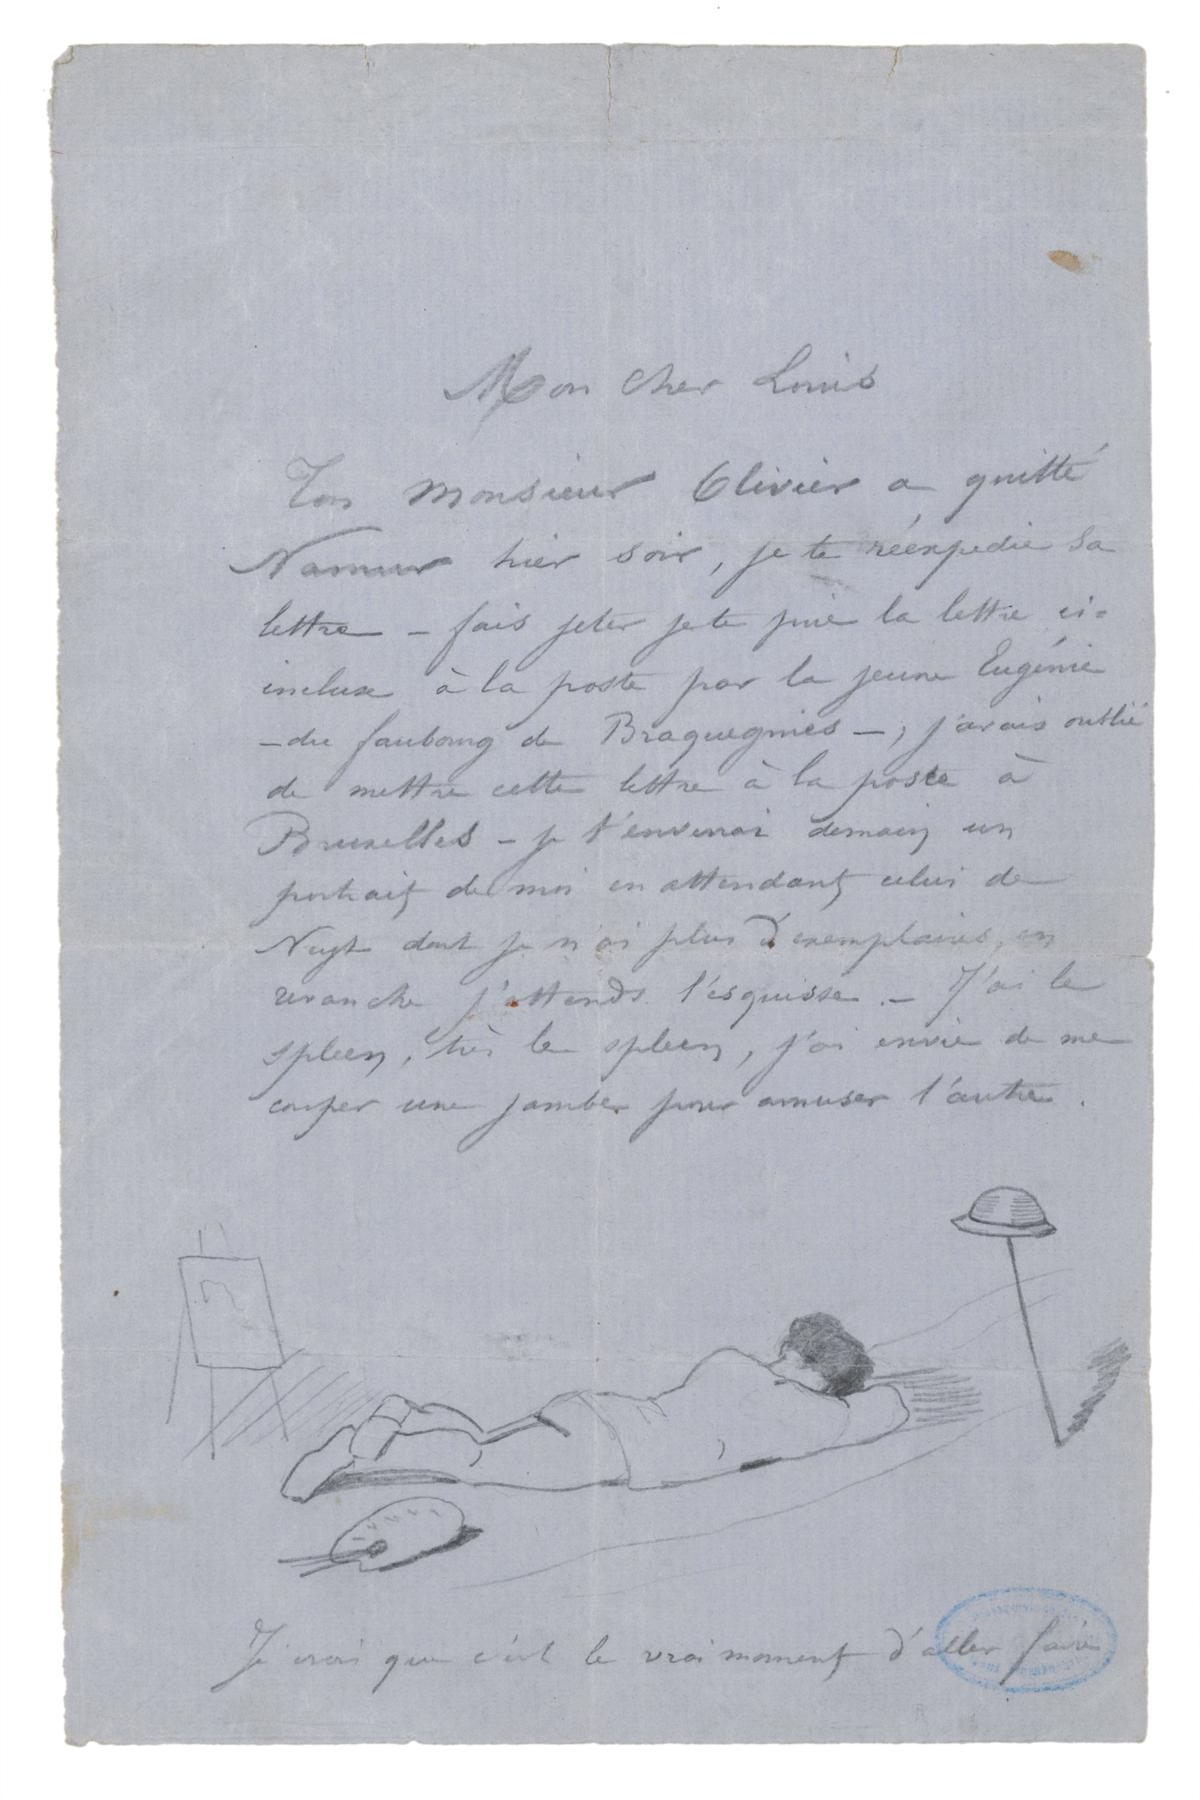 Mon cher Louis
Ton Monsieur Olivier a quitté
Namur hier soir, je te réexpedie sa
lettre – fais jeter je te prie la lettre ci-
incluse à la poste par la jeune Eugénie
– du faubourg de Braquegnies – ; j'avais oublié
de mettre cette lettre à la poste à
Bruxelles – je t'enverrai demain un
portrait de moi en attendant celui de
Nuyt dont je n'ai plus d'exemplaires, en
revanche j'attends l'esquisse. – J'ai le
spleen, très le spleen, j'ai envie de me
couper une jambe pour amuser l'autre.
Je crois que c'est le vrai moment d'aller faire